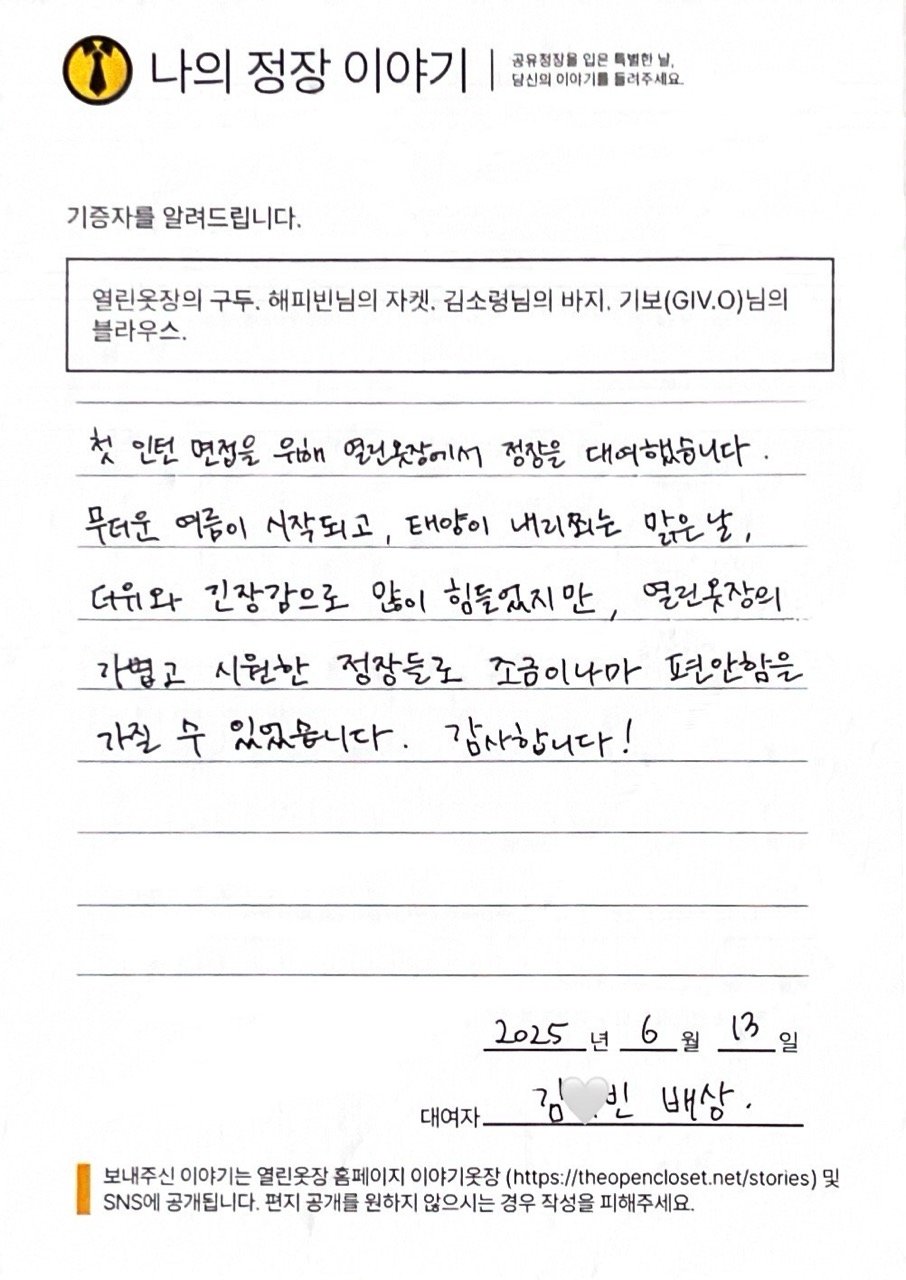 나의 정장 이야기
공유정장을 입은 특별한 날,
당신의 이야기를 들려주세요.
기증자를 알려드립니다.
열린옷장의 구두. 해피빈님의 자켓. 김소령님의 바지. 기보(GIV.O)님의
블라우스.
첫 인턴 면접을 위해 열린옷장에서 정장을 대여했습니다.
무더운 여름이 시작되고, 태양이 내리쬐는 맑은날,
더위와 긴장감으로 많이 힘들었지만, 열린옷장의
가볍고 시원한 정장들로 조금이나마 편안함을
가질 수 있었습니다. 감사합니다!
2025 년 6 월 13 일
대여자 김 빈 배상.
보내주신 이야기는 열린옷장 홈페이지 이야기옷장 (https://theopencloset.net/stories) 및
SNS에 공개됩니다. 편지 공개를 원하지 않으시는 경우 작성을 피해주세요.